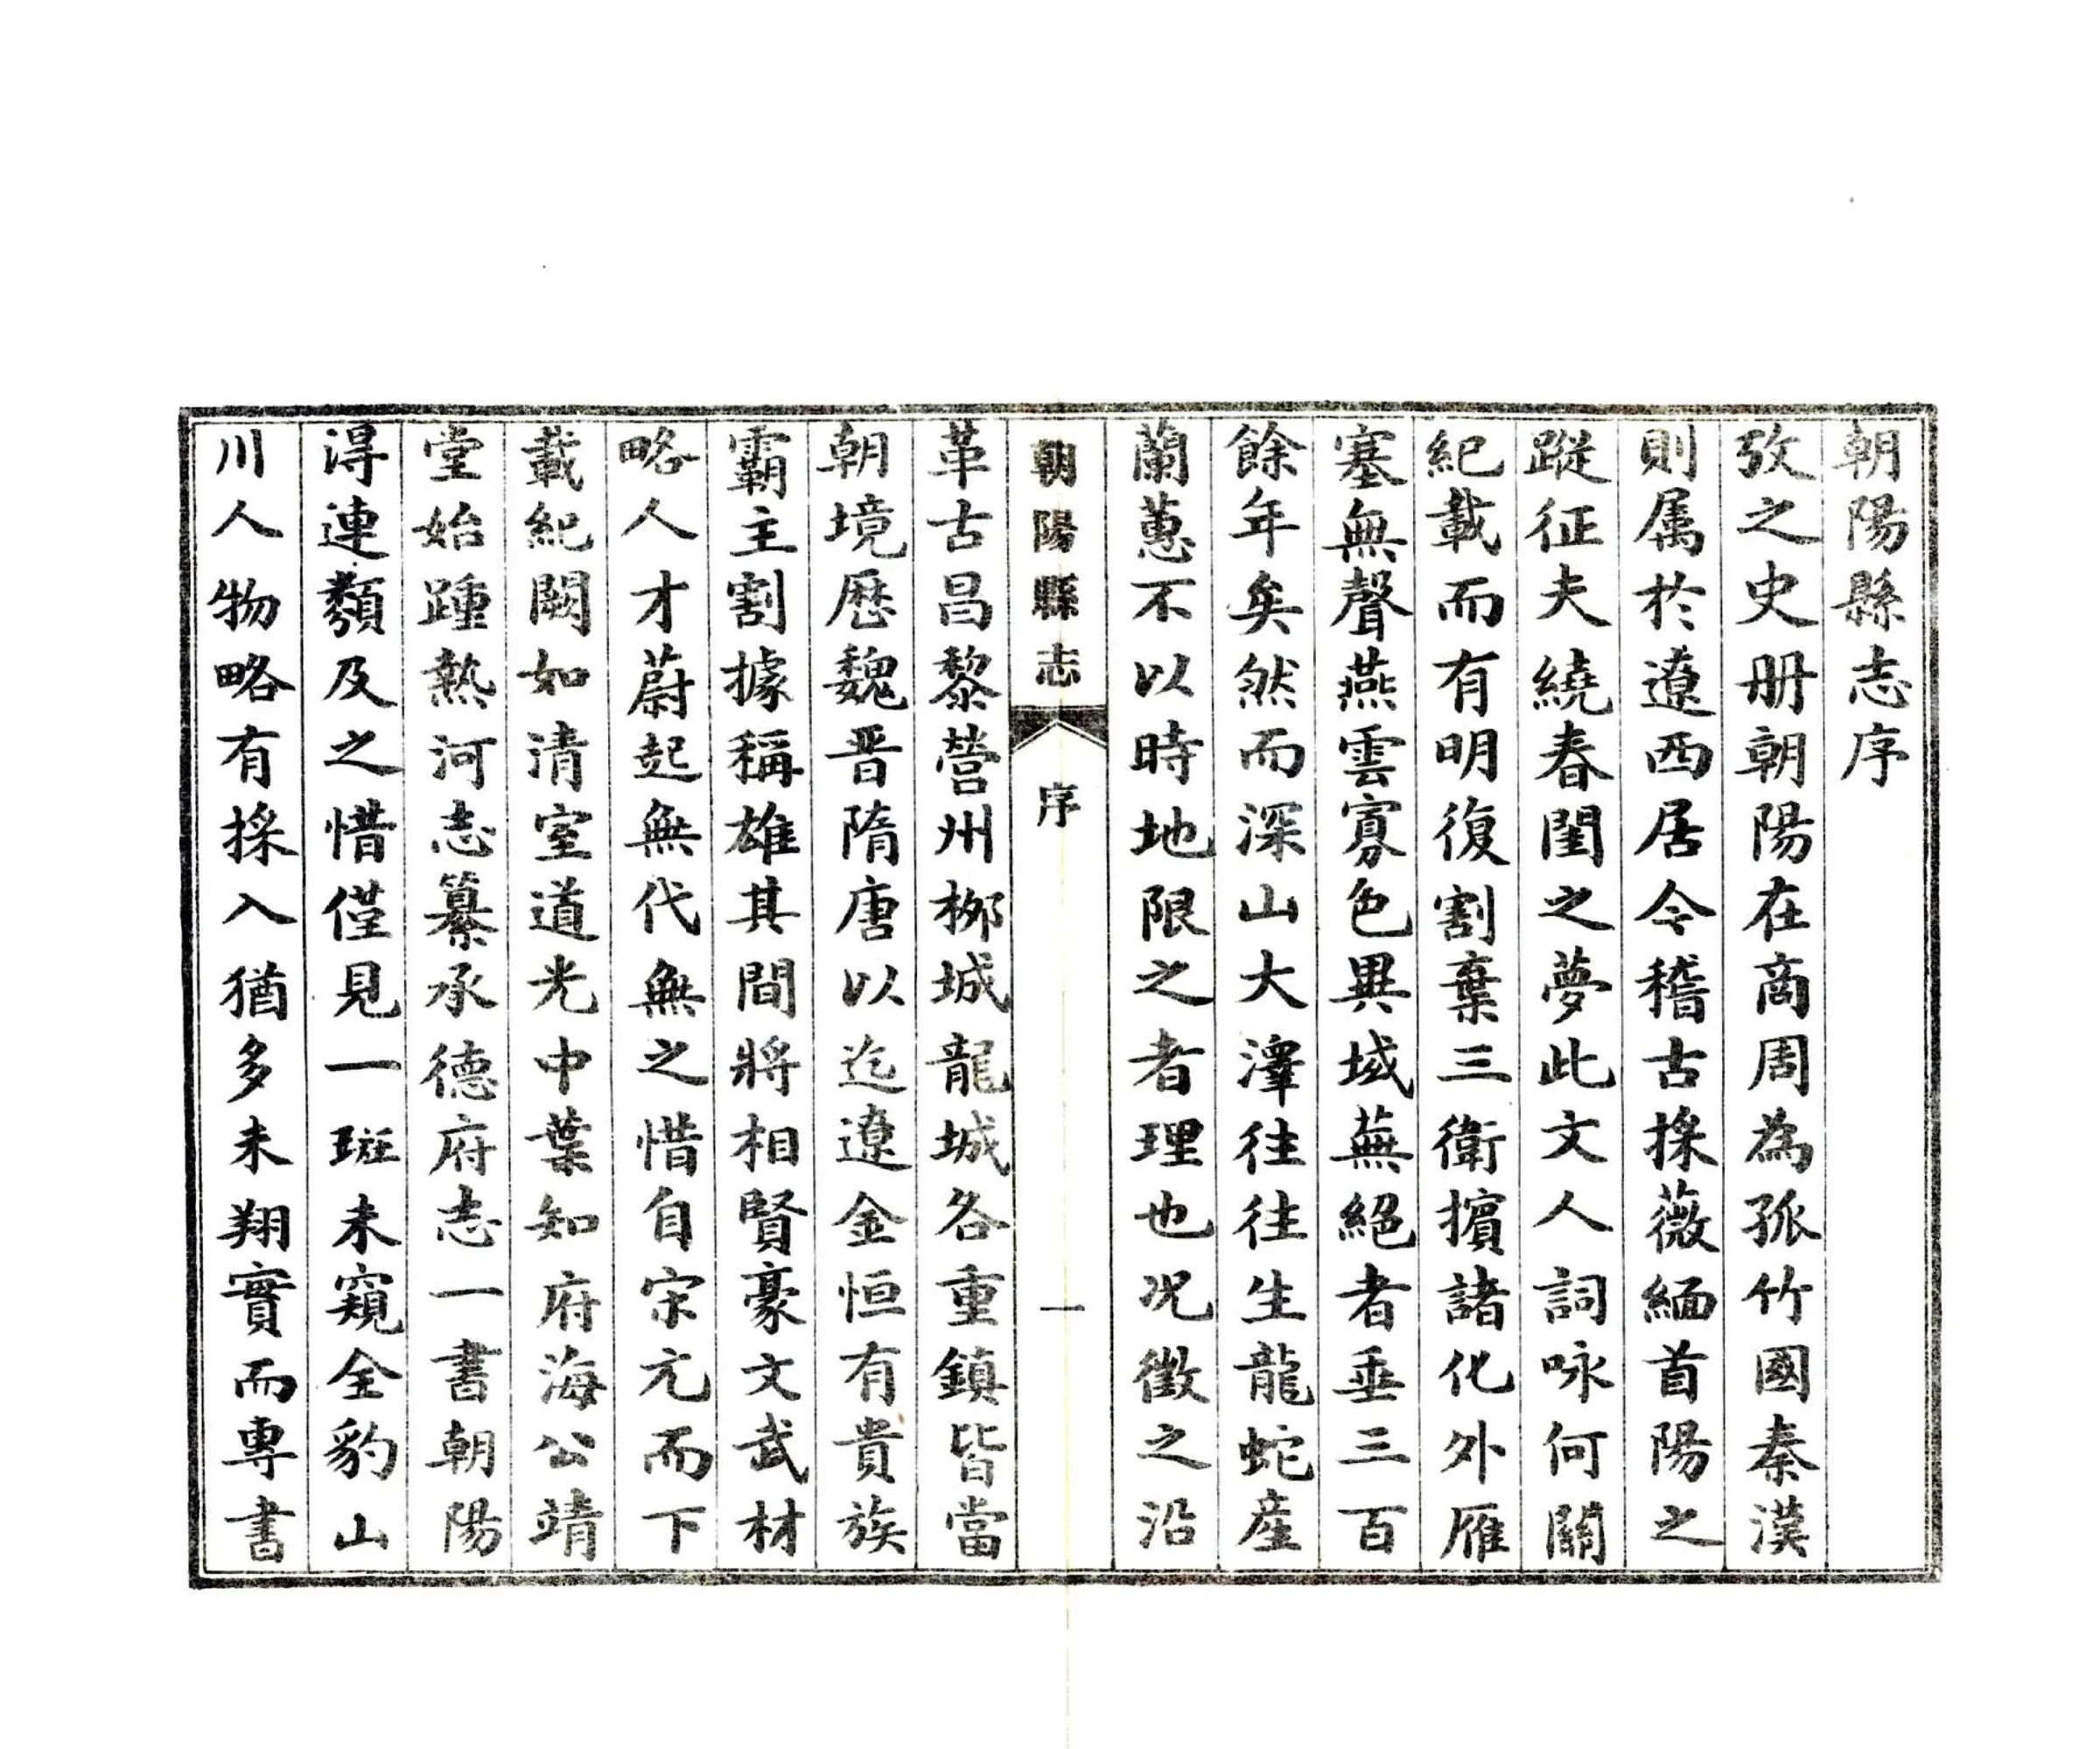 朝陽縣志序
攷之史册朝陽在商周為孤竹國秦漢
則属於遼西居今稽古採薇緬首陽之
蹤征夫繞春閨之夢此文人詞咏何關
紀載而有明復割棄三衛擯諸化外雁
塞無聲燕雲寡色異域蕪絕者垂三百
餘年矣然而深山大澤往往生龍蛇産
蘭蕙不以時地限之者理也况徵之沿
朝陽縣志 序 一
革古昌黎營州栁城龍城各重鎮皆當
朝境歷魏晋隋唐以迄遼金恒有貴族
霸主割據稱雄其間將相賢豪文武材
略人才蔚起無代無之惜自宋元而下
載紀闕如清室道光中葉知府海公靖
堂始踵熱河志纂承德府志一書朝陽
得連類及之惜僅見一斑未窺全豹山
川人物略有採入猶多未翔實而專書